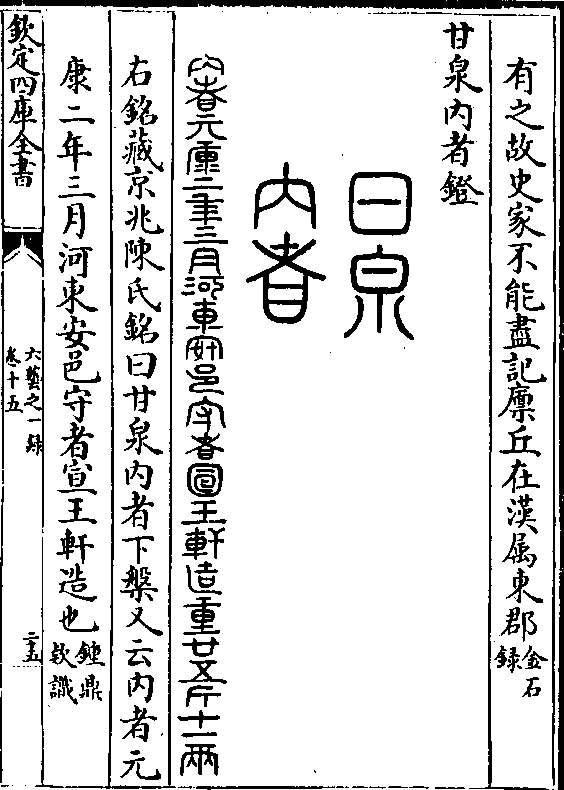 有之故史家不能盡記廩丘在漢属東郡金石
録
甘泉内者鐙
甘泉
内者
内者元康二年三月河東安邑守者宣王軒造重廿五斤十一兩
右銘藏京兆陳氏銘曰甘泉内者下槃又云内者元
康二年三月河東安邑守者宣王軒造也鍾鼎
欵識
欽定四庫全書
六藝之一録
卷十五